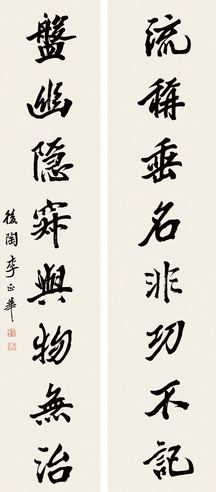 流稱垂名非功不記
盤幽隱寂與物無治
後陶李正華